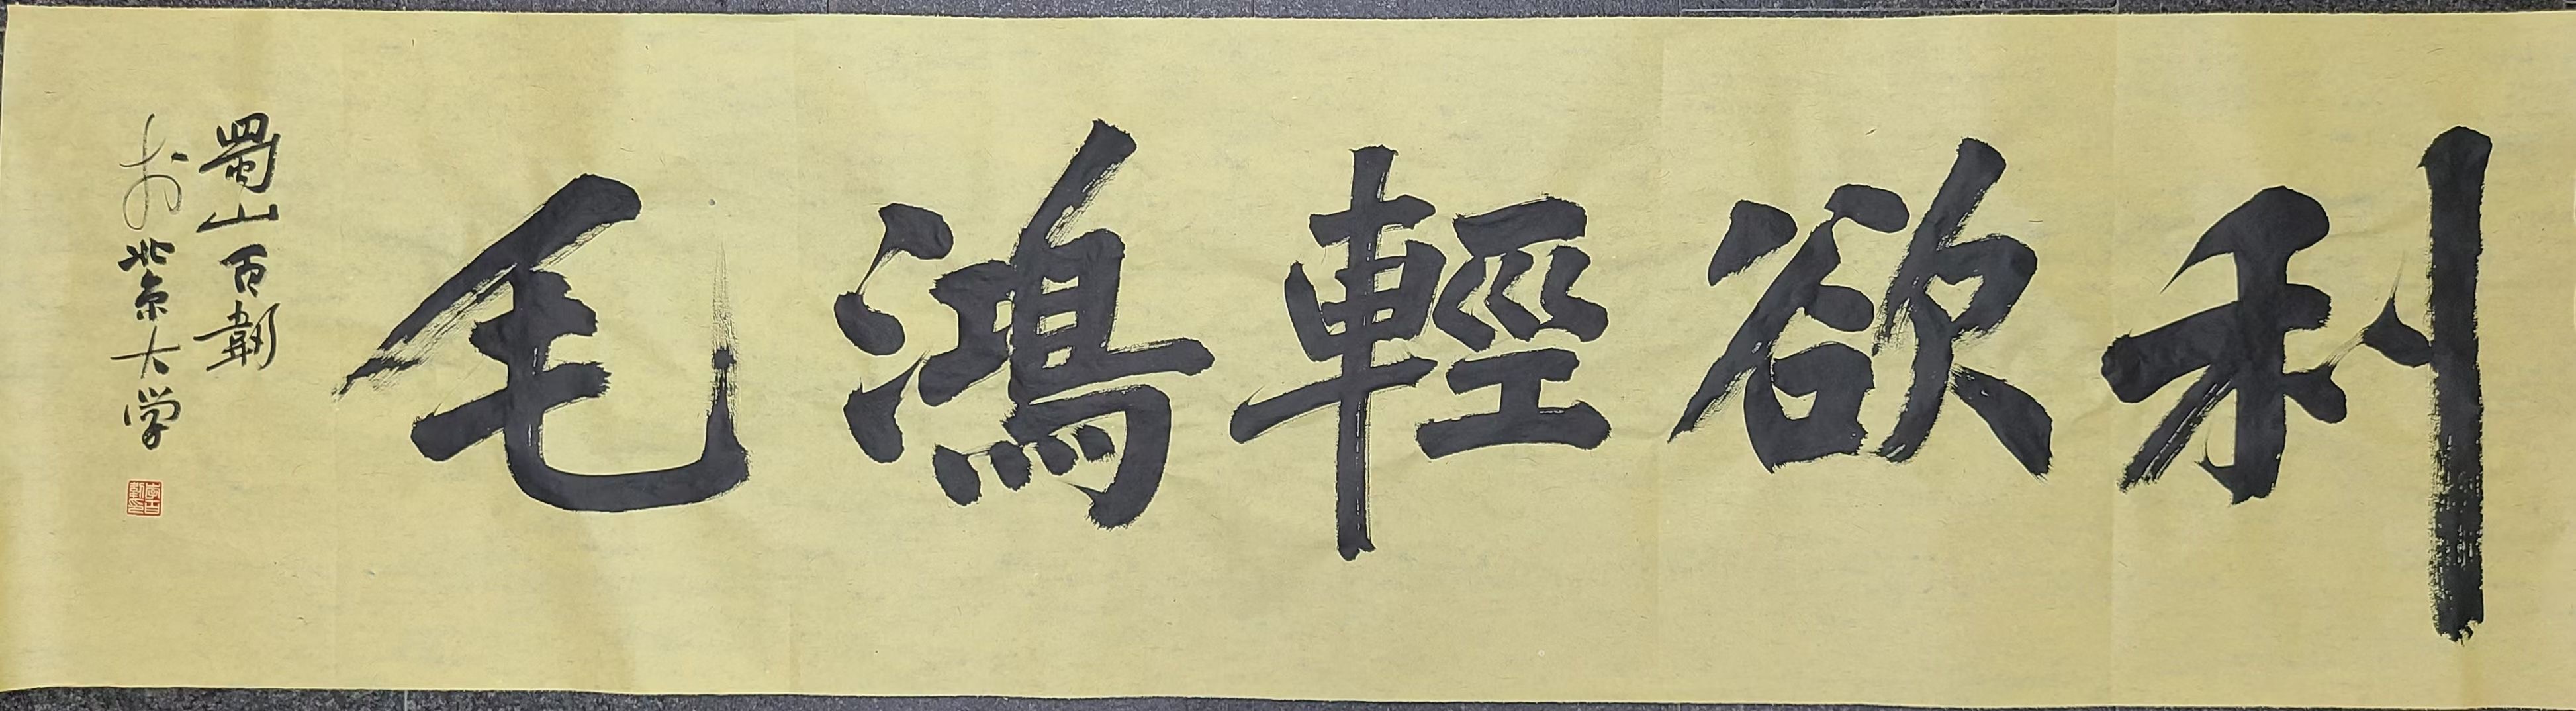 利欲輕鴻毛
蜀山百韌
於北京大学